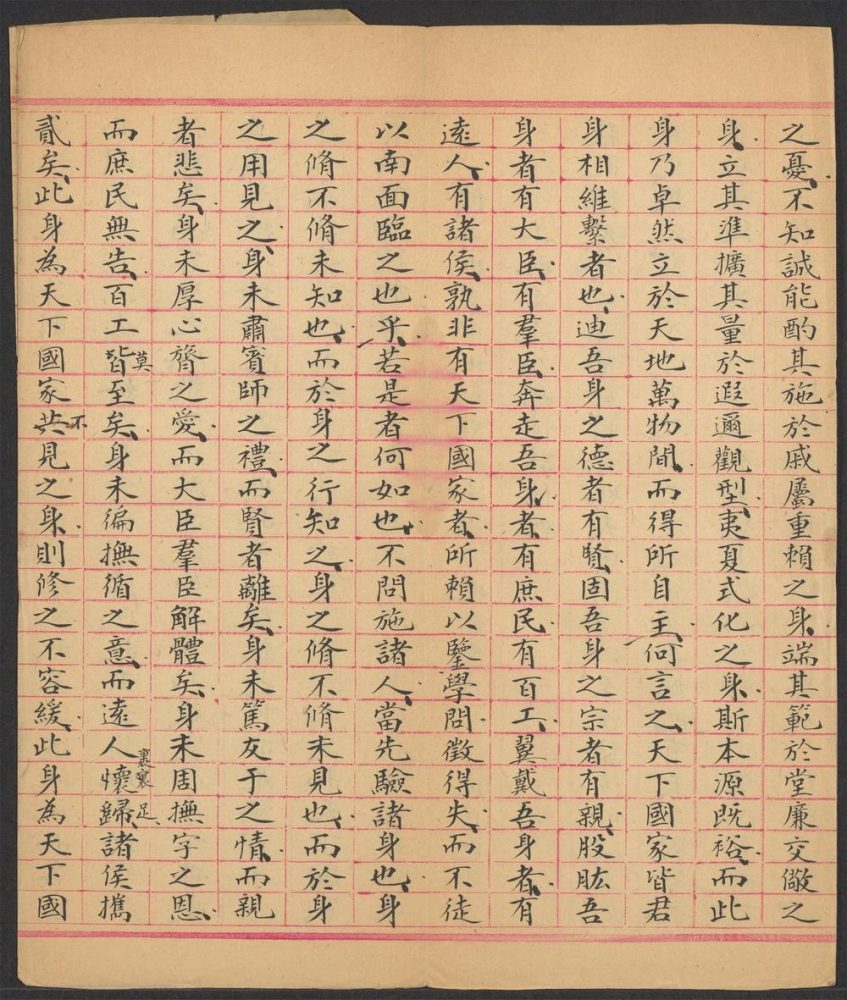 之憂不知誠能酌其施於戚屬重賴之身端其範於堂廉交儆之
身立其準擴其量於遐邇觀型夷夏式化之身斯本源既裕而此
身乃卓然立於天地萬物間而得所自主何言之天下國家皆君
身相維繫者也迪吾身之德者有賢固吾身之宗者有親股肱吾
身者有大臣有羣臣奔走吾身者有庶民有百工翼戴吾身者有
遠人有諸侯孰非有天下國家者所賴以鑒學問徵得失而不徒
以南面臨之也乎若是者何如也不問施諸人當先驗諸身也身
之脩不脩未知也而於身之行知之身之脩不脩未見也而於身
之用見之身未肅賓師之禮而賢者離矣身未篤友于之情而親
者悲矣身未厚心膂之愛而大臣羣臣解體矣身未周撫字之恩
而庶民無告百工皆莫至矣身未徧撫循之意而遠人懷歸裹足諸侯攜
貳矣此身為天下國家共不見之身則修之不容緩此身為天下國